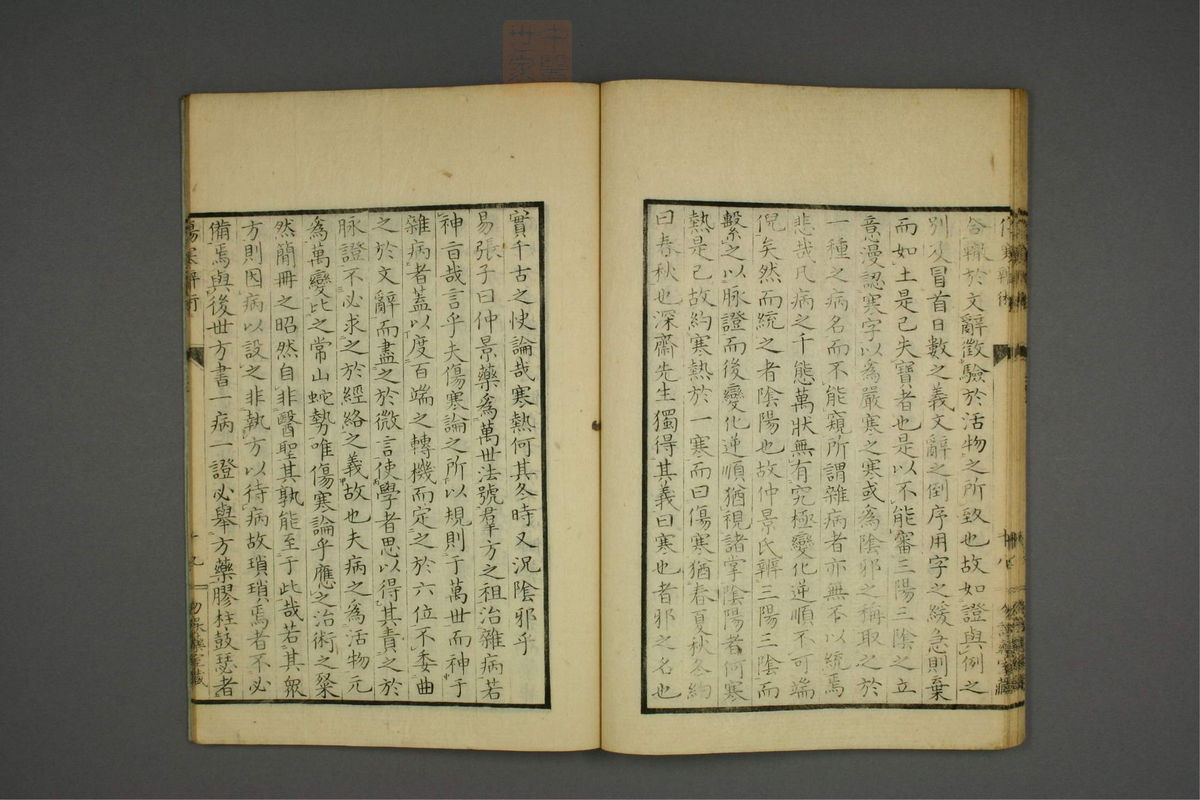 咎轍於文辭徵驗於活物之所致也故如證與例之
別及冒首日數之義文辭之倒序用字之緩急則棄
而如土是已夫寶者也是以不能審三陽三陰之立
意漫認寒字以爲嚴寒之寒或爲陰邪之稱取之於
一種之病名而不能窺所謂雜病者亦無不以統焉
悲哉凡病之千態萬狀無有究極變化逆順不可端
倪矣然而統之者陰陽也故仲景氏辨三陽三陰而
繫之以脉證而後變化逆順猶視諸掌陰陽者何寒
熱是已故約寒熱於一寒而曰傷寒猶春夏秋冬約
曰春秋也深齋先生獨得其義曰寒也者邪之名也
實千古之快論哉寒熱何其冬時又況陰邪乎
易張子曰仲景藥爲萬世法號羣方之祖治雜病若
神旨哉言乎夫傷寒論之所以規則于萬世而神于
雜病者蓋以度百端之轉機而定之於六位不委曲
之於文辭而盡之於微言使學者思以得其責之於
脉證不必求之於經絡之義故也夫病之爲活物元
爲萬變比之常山蛇勢唯傷寒論乎應之治術之粲
然簡冊之昭然自非醫聖其孰能至于此哉若其衆
方則因病以設之非執方以待病故瑣瑣焉者不必
備焉與後世方書一病一證必擧方藥膠柱鼓瑟者
傷寒辨術
十九